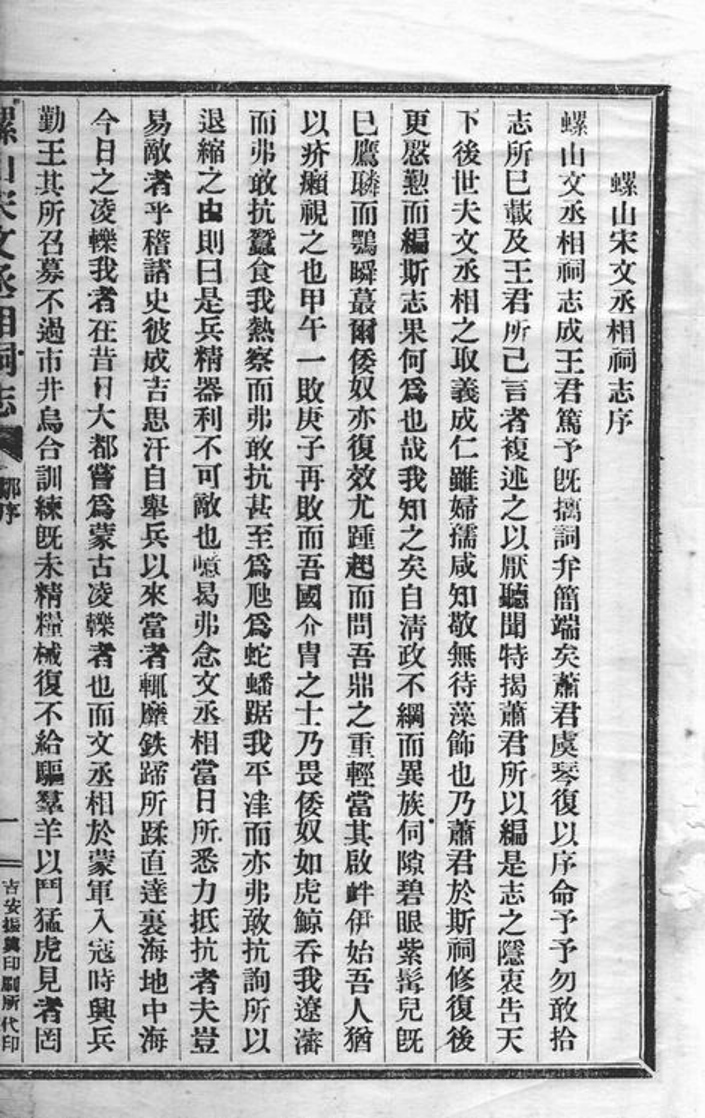 螺山宋文丞相祠志序
螺山文丞相祠志成王君篤予旣摛詞弁簡端矣蕭君虞琴復以序命予予勿敢拾
志所已載及王君所已言者複述之以厭聽聞特揭蕭君所以編是志之隱衷吿天
下後世夫文丞相之取義成仁雖婦孺咸知敬無待藻飾也乃蕭君於斯祠修復後
更慇懃而編斯志果何爲也哉我知之矣自清政不綱而異族伺隙碧眼紫髯兒旣
已鷹瞵而鶚瞬蕞爾倭奴亦復效尤踵起而問吾鼎之重輕當其啟衅伊始吾人猶
以疥癩視之也甲午一敗庚子再敗而吾國介胄之士乃畏倭奴如虎鯨吞我遼瀋
而弗敢抗蠶食我熱察而弗敢抗甚至爲虺爲蛇蟠踞我平津而亦弗敢抗詢所以
退縮之由則曰是兵精器利不可敵也噫曷弗念文丞相當日所悉力抵抗者夫豈
易敵者乎稽諸史彼成吉思汗自舉兵以來當者輒靡鉄蹄所蹂直達裏海地中海
今日之凌轢我者在昔日大都嘗爲蒙古凌轢者也而文丞相於蒙軍入寇時興兵
勤王其所召募不過市井烏合訓練旣未精糧械復不給驅羣羊以鬥猛虎見者罔
螺山宋文丞相祠志
鄒序
一
吉安振興印刷所代印